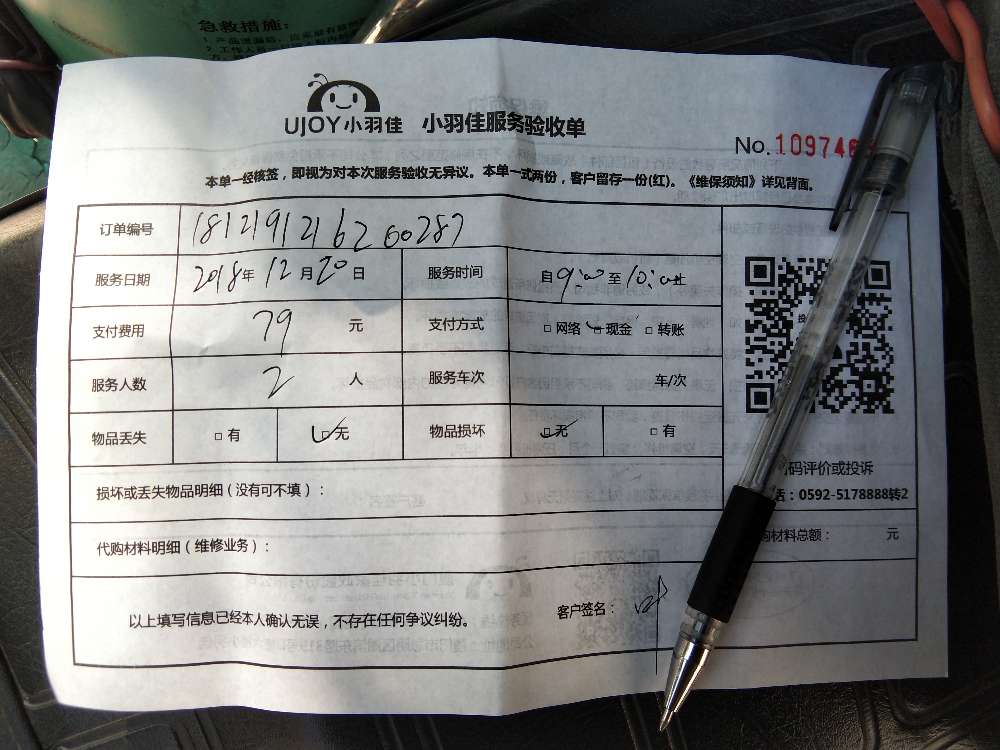 急救措施：
UJOY小羽佳 小羽佳服务验收单
No.109746
本单一经核签，即视为对本次服务验收无异议。本单一式两份，客户留存一份(红)。《维保须知》详见背面。
订单编号 1812191216260287
服务日期 2018年12月20日 服务时间 自9:00至10:00止
支付费用 79 元 支付方式 □网络 □现金 □转账
服务人数 2 人 服务车次 车/次
物品丢失 □有 □无 物品损坏 □无 □有
码评价或投诉
损坏或丢失物品明细（没有可不填）：
：0592-5178888转2
代购材料明细（维修业务）：
材料总额： 元
以上填写信息已经本人确认无误，不存在任何争议纠纷。
客户签名：